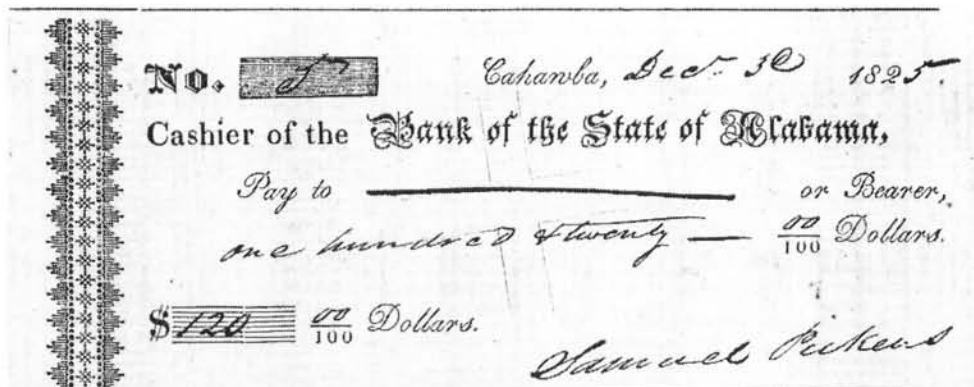 No. 5 Cahawba, Decr 30 1825.
Cashier of the Bank of the State of Alabama,
Pay to or Bearer,
one hundred & twenty — 00/100 Dollars.
$120 00/100 Dollars.
Samuel Pickens